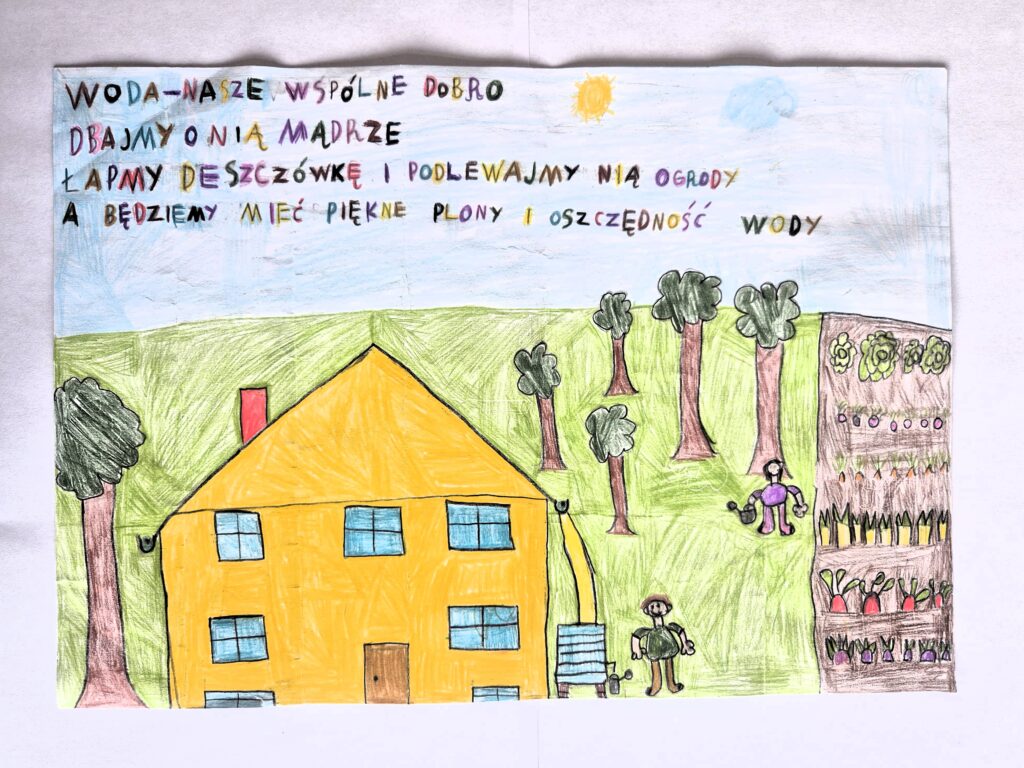 WODA-NASZE WSPÓLNE DOBRO
DBAJMY O NIĄ MĄDRZE
ŁAPMY DESZCZÓWKĘ I PODLEWAJMY NIĄ OGRODY
A BĘDZIEMY MIEĆ PIĘKNE PLONY I OSZCZĘDNOŚĆ WODY